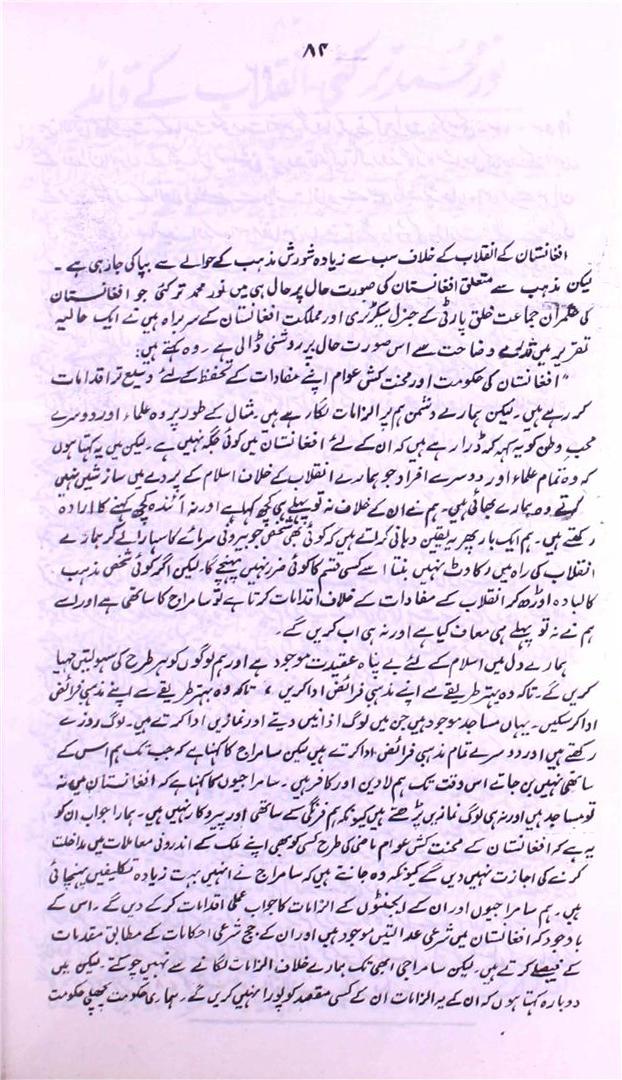 ۸۴
افغانستان کے انقلاب کے خلاف سب سے زیادہ شورش مذہب کے حوالے سے بپا کی جا رہی ہے ۔
لیکن مذہب سے متعلق افغانستان کی صورت حال پر حال ہی میں نور محمد ترکئی جو افغانستان
کی حکمران جماعت خلق پارٹی کے جنرل سیکرٹری اور مملکت افغانستان کے سربراہ ہیں نے ایک حالیہ
تقریر میں قدرے وضاحت سے اس صورت حال پر روشنی ڈالی ہے ۔ وہ کہتے ہیں :
" افغانستان کی حکومت اور محنت کش عوام اپنے مفادات کے تحفظ کے لئے وسیع تر اقدامات
کر رہے ہیں ۔ لیکن ہمارے دشمن ہم پر الزامات لگا رہے ہیں ۔ مثال کے طور پر وہ علماء اور دوسرے
محب وطن کو یہ کہہ کر ڈرا رہے ہیں کہ ان کے لئے افغانستان میں کوئی جگہ نہیں ہے ۔ لیکن میں یہ کہتا ہوں
کہ وہ تمام علماء اور دوسرے افراد جو ہمارے انقلاب کے خلاف اسلام کے پردے میں سازشیں نہیں
کرتے وہ ہمارے بھائی ہیں ۔ ہم نے ان کے خلاف نہ تو پہلے ہی کچھ کہا ہے اور نہ آئندہ کچھ کہنے کا ارادہ
رکھتے ہیں ۔ ہم ایک بار پھر یہ یقین دہانی کراتے ہیں کہ کوئی بھی شخص جو بیرونی سرمائے کا سہارا لے کر ہمارے
انقلاب کی راہ میں رکاوٹ نہیں بنتا اسے کسی قسم کا کوئی ضرر نہیں پہنچے گا ۔ لیکن اگر کوئی شخص مذہب
کا لبادہ اوڑھ کر انقلاب کے مفادات کے خلاف اقدامات کرتا ہے تو سامراج کا ساتھی ہے اور اسے
ہم نے نہ تو پہلے ہی معاف کیا ہے اور نہ ہی اب کریں گے ۔
ہمارے دل میں اسلام کے لئے بے پناہ عقیدت موجود ہے اور ہم لوگوں کو ہر طرح کی سہولتیں مہیا
کریں گے ۔ تاکہ وہ بہتر طریقے سے اپنے مذہبی فرائض ادا کریں ، تاکہ وہ بہتر طریقے سے اپنے مذہبی فرائض
ادا کر سکیں ۔ یہاں مساجد موجود ہیں جن میں لوگ اذانیں دیتے اور نمازیں ادا کرتے ہیں ۔ لوگ روزے
رکھتے ہیں اور دوسرے تمام مذہبی فرائض ادا کرتے ہیں لیکن سامراج کا کہنا ہے کہ جب تک ہم اس کے
ساتھی نہیں بن جاتے اس وقت تک ہم لادین اور کافر ہیں ۔ سامراجیوں کا کہنا ہے کہ افغانستان میں نہ
تو مساجد ہیں اور نہ ہی لوگ نمازیں پڑھتے ہیں کیونکہ ہم فرنگی کے ساتھی اور پیروکار نہیں ہیں ۔ ہمارا جواب ان کو
یہ ہے کہ افغانستان کے محنت کش عوام ماضی کی طرح کسی کو بھی اپنے ملک کے اندرونی معاملات میں مداخلت
کرنے کی اجازت نہیں دیں گے کیونکہ وہ جانتے ہیں کہ سامراج نے انہیں بہت زیادہ تکلیفیں پہنچائی
ہیں ۔ ہم سامراجیوں اور ان کے ایجنٹوں کے الزامات کا جواب عملی اقدامات کر کے دیں گے ۔ اس کے
باوجود کہ افغانستان میں شرعی عدالتیں موجود ہیں اور ان کے جج شرعی احکامات کے مطابق مقدمات
کے فیصلے کرتے ہیں ۔ لیکن سامراجی ابھی تک ہمارے خلاف الزامات لگانے سے نہیں چوکتے ۔ لیکن میں
دوبارہ کہتا ہوں کہ ان کے یہ الزامات ان کے کسی مقصد کو پورا نہیں کریں گے ۔ ہماری حکومت پچھلی حکومت